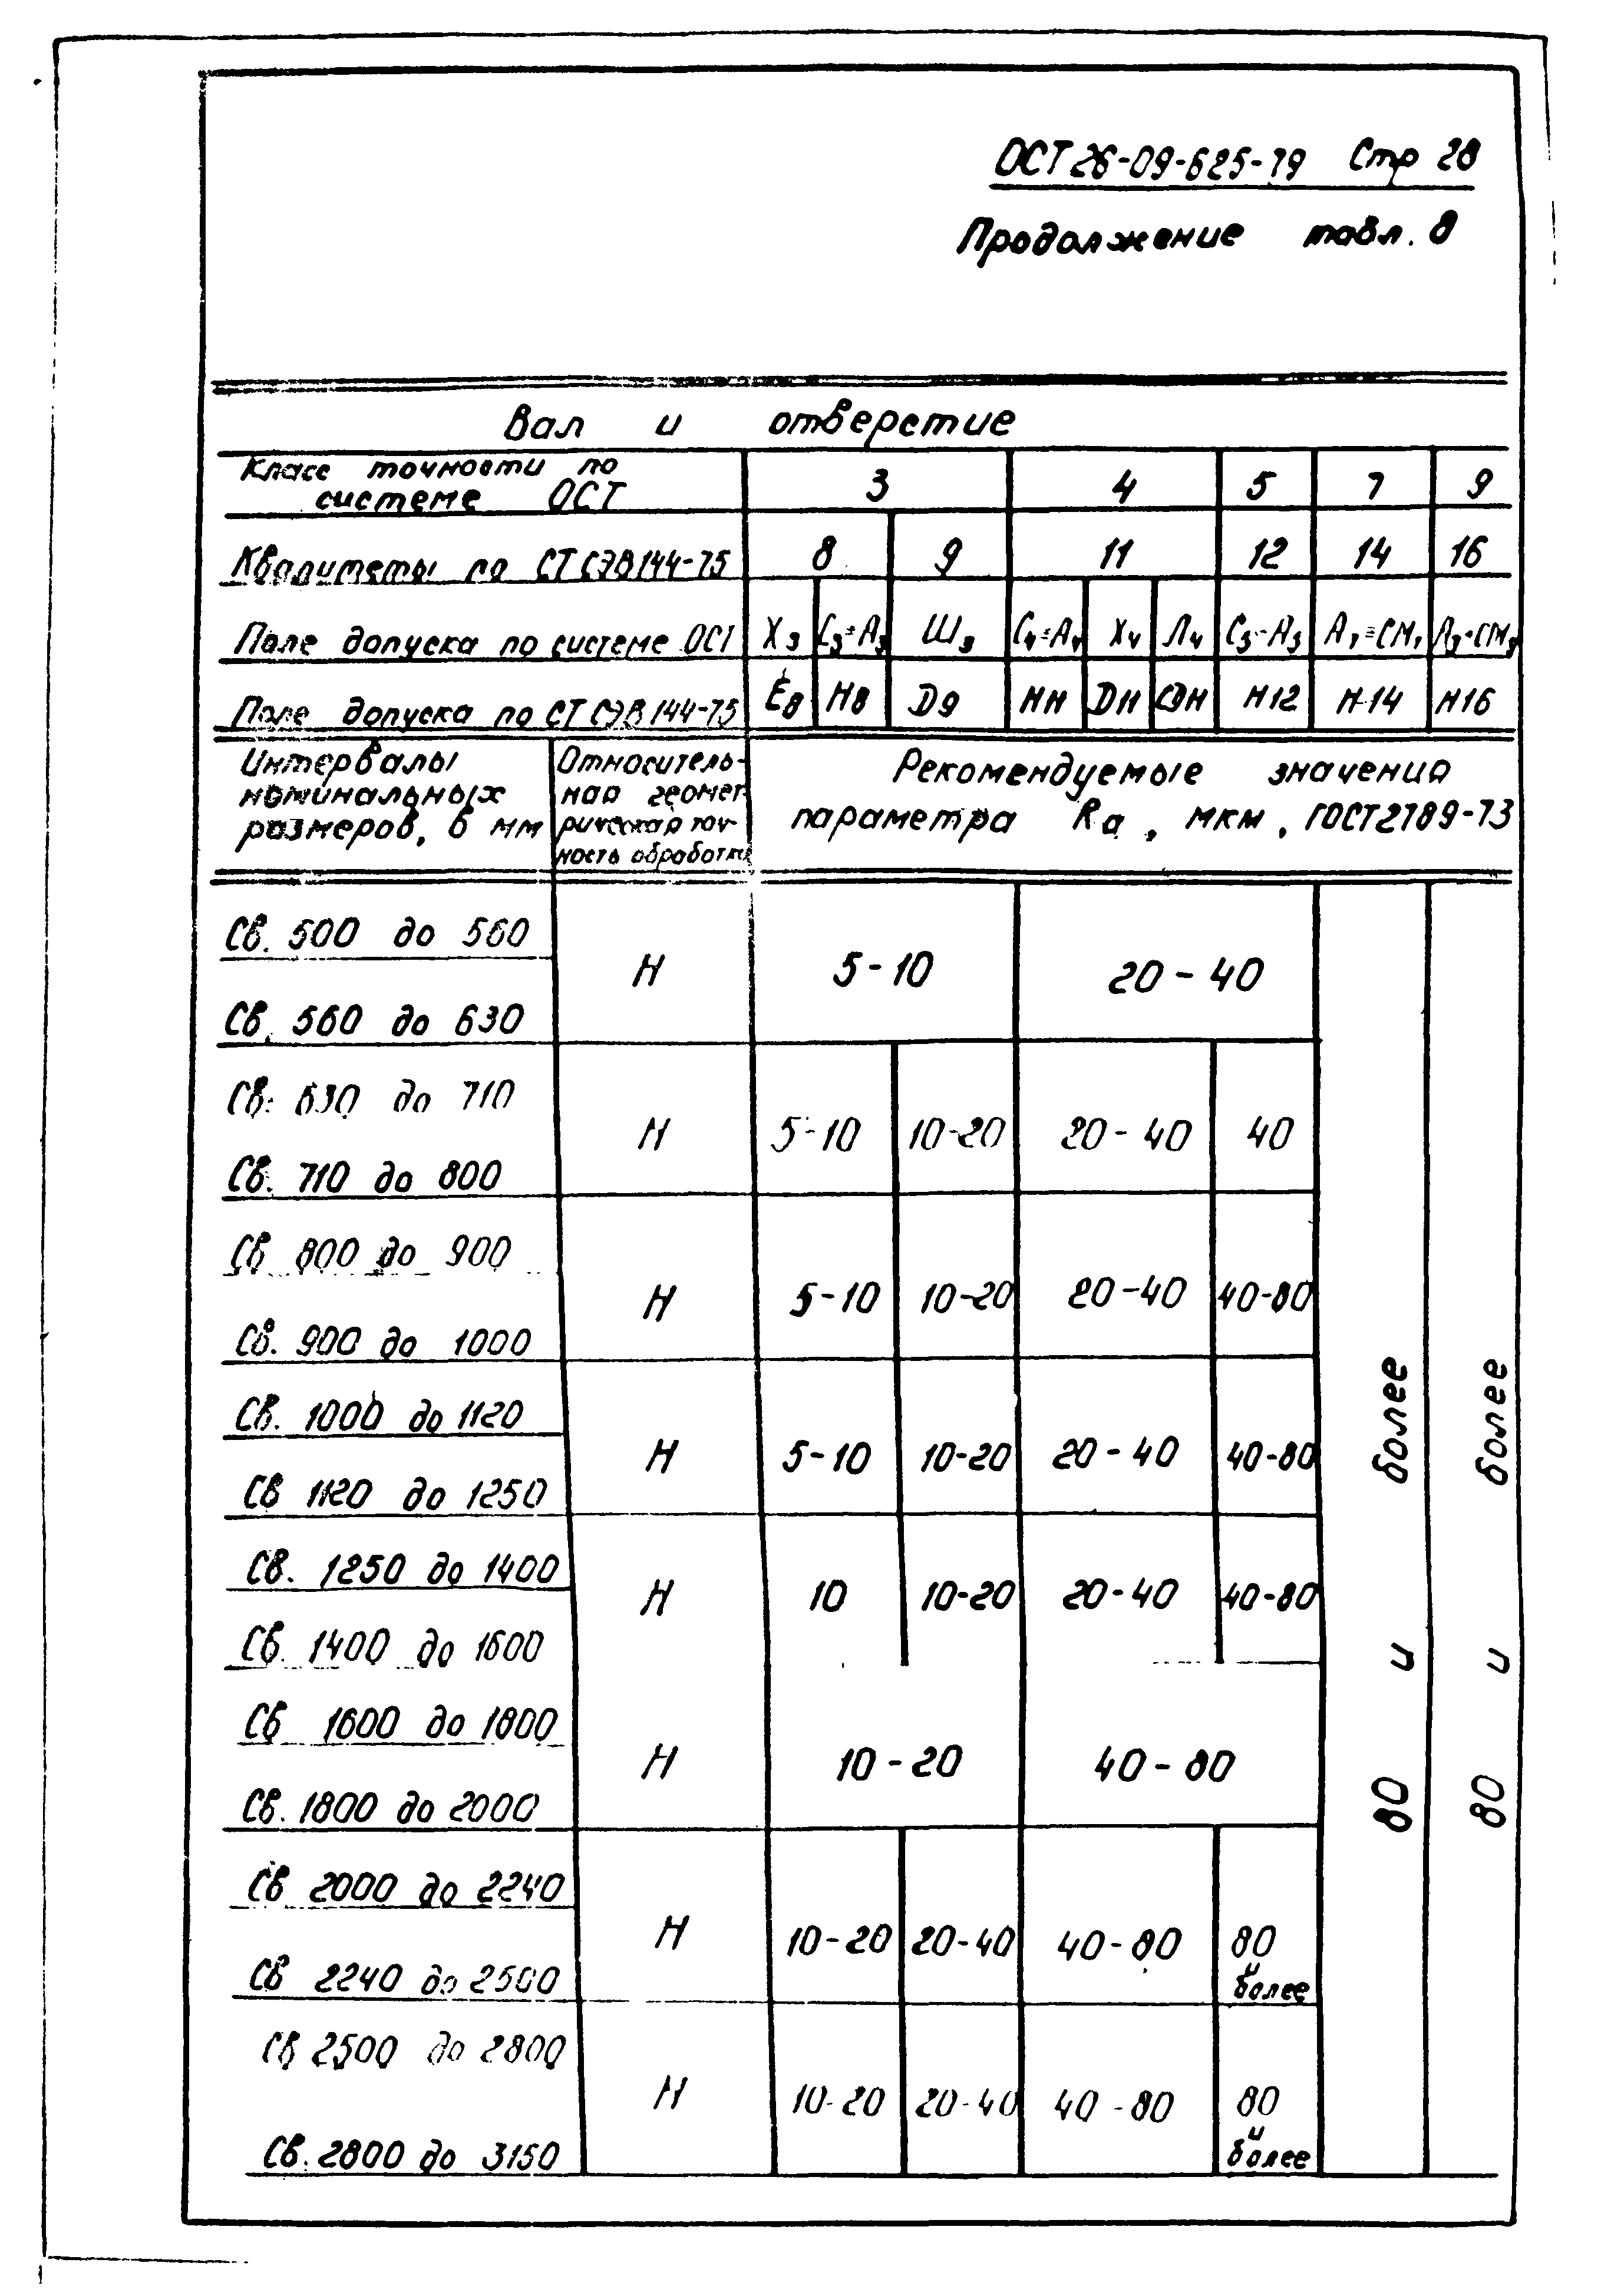 ОСТ 26-09-625-79 Стр 28
Продолжение табл. 8
Вал и отверстие
Класс точности по системе ОСТ 3 4 5 7 9
Квалитеты по СТ СЭВ 144-75 8 9 11 12 14 16
Поле допуска по системе ОСТ Х₃ С₃=А₃ Ш₃ С₄=А₄ Х₄ Л₄ С₅=А₅ А₇=СМ₇
Поле допуска по СТ СЭВ 144-75 Е8 Н8 D9 D11 Н12 Н14 Н16
Интервалы номинальных размеров, в мм
Относительная геометрическая точность обработки
Рекомендуемые значения параметра Ra, мкм, ГОСТ 2789-73
Св. 500 до 560
Н 5-10 20-40
Св. 560 до 630
Св. 630 до 710
Н 5-10 10-20 20-40 40
Св. 710 до 800
Св 800 до 900
Н 5-10 10-20 20-40 40-80
Св. 900 до 1000
Св. 1000 до 1120
Н 5-10 10-20 20-40 40-80
Св 1120 до 1250
Св. 1250 до 1400
Н 10 10-20 20-40 40-80
Св. 1400 до 1600
Св 1600 до 1800
Н 10-20 40-80
Св. 1800 до 2000
Св 2000 до 2240
Н 10-20 20-40 40-80 80 и более
Св 2240 до 2500
Св 2500 до 2800
Н 10-20 20-40 40-80 80 и более
Св. 2800 до 3150
80 и более
80 и более